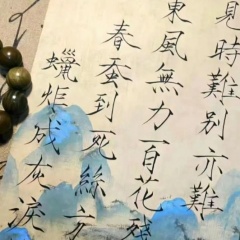 見時難別亦難
東風無力百花殘
春蚕到死絲方
蠟炬成灰淚